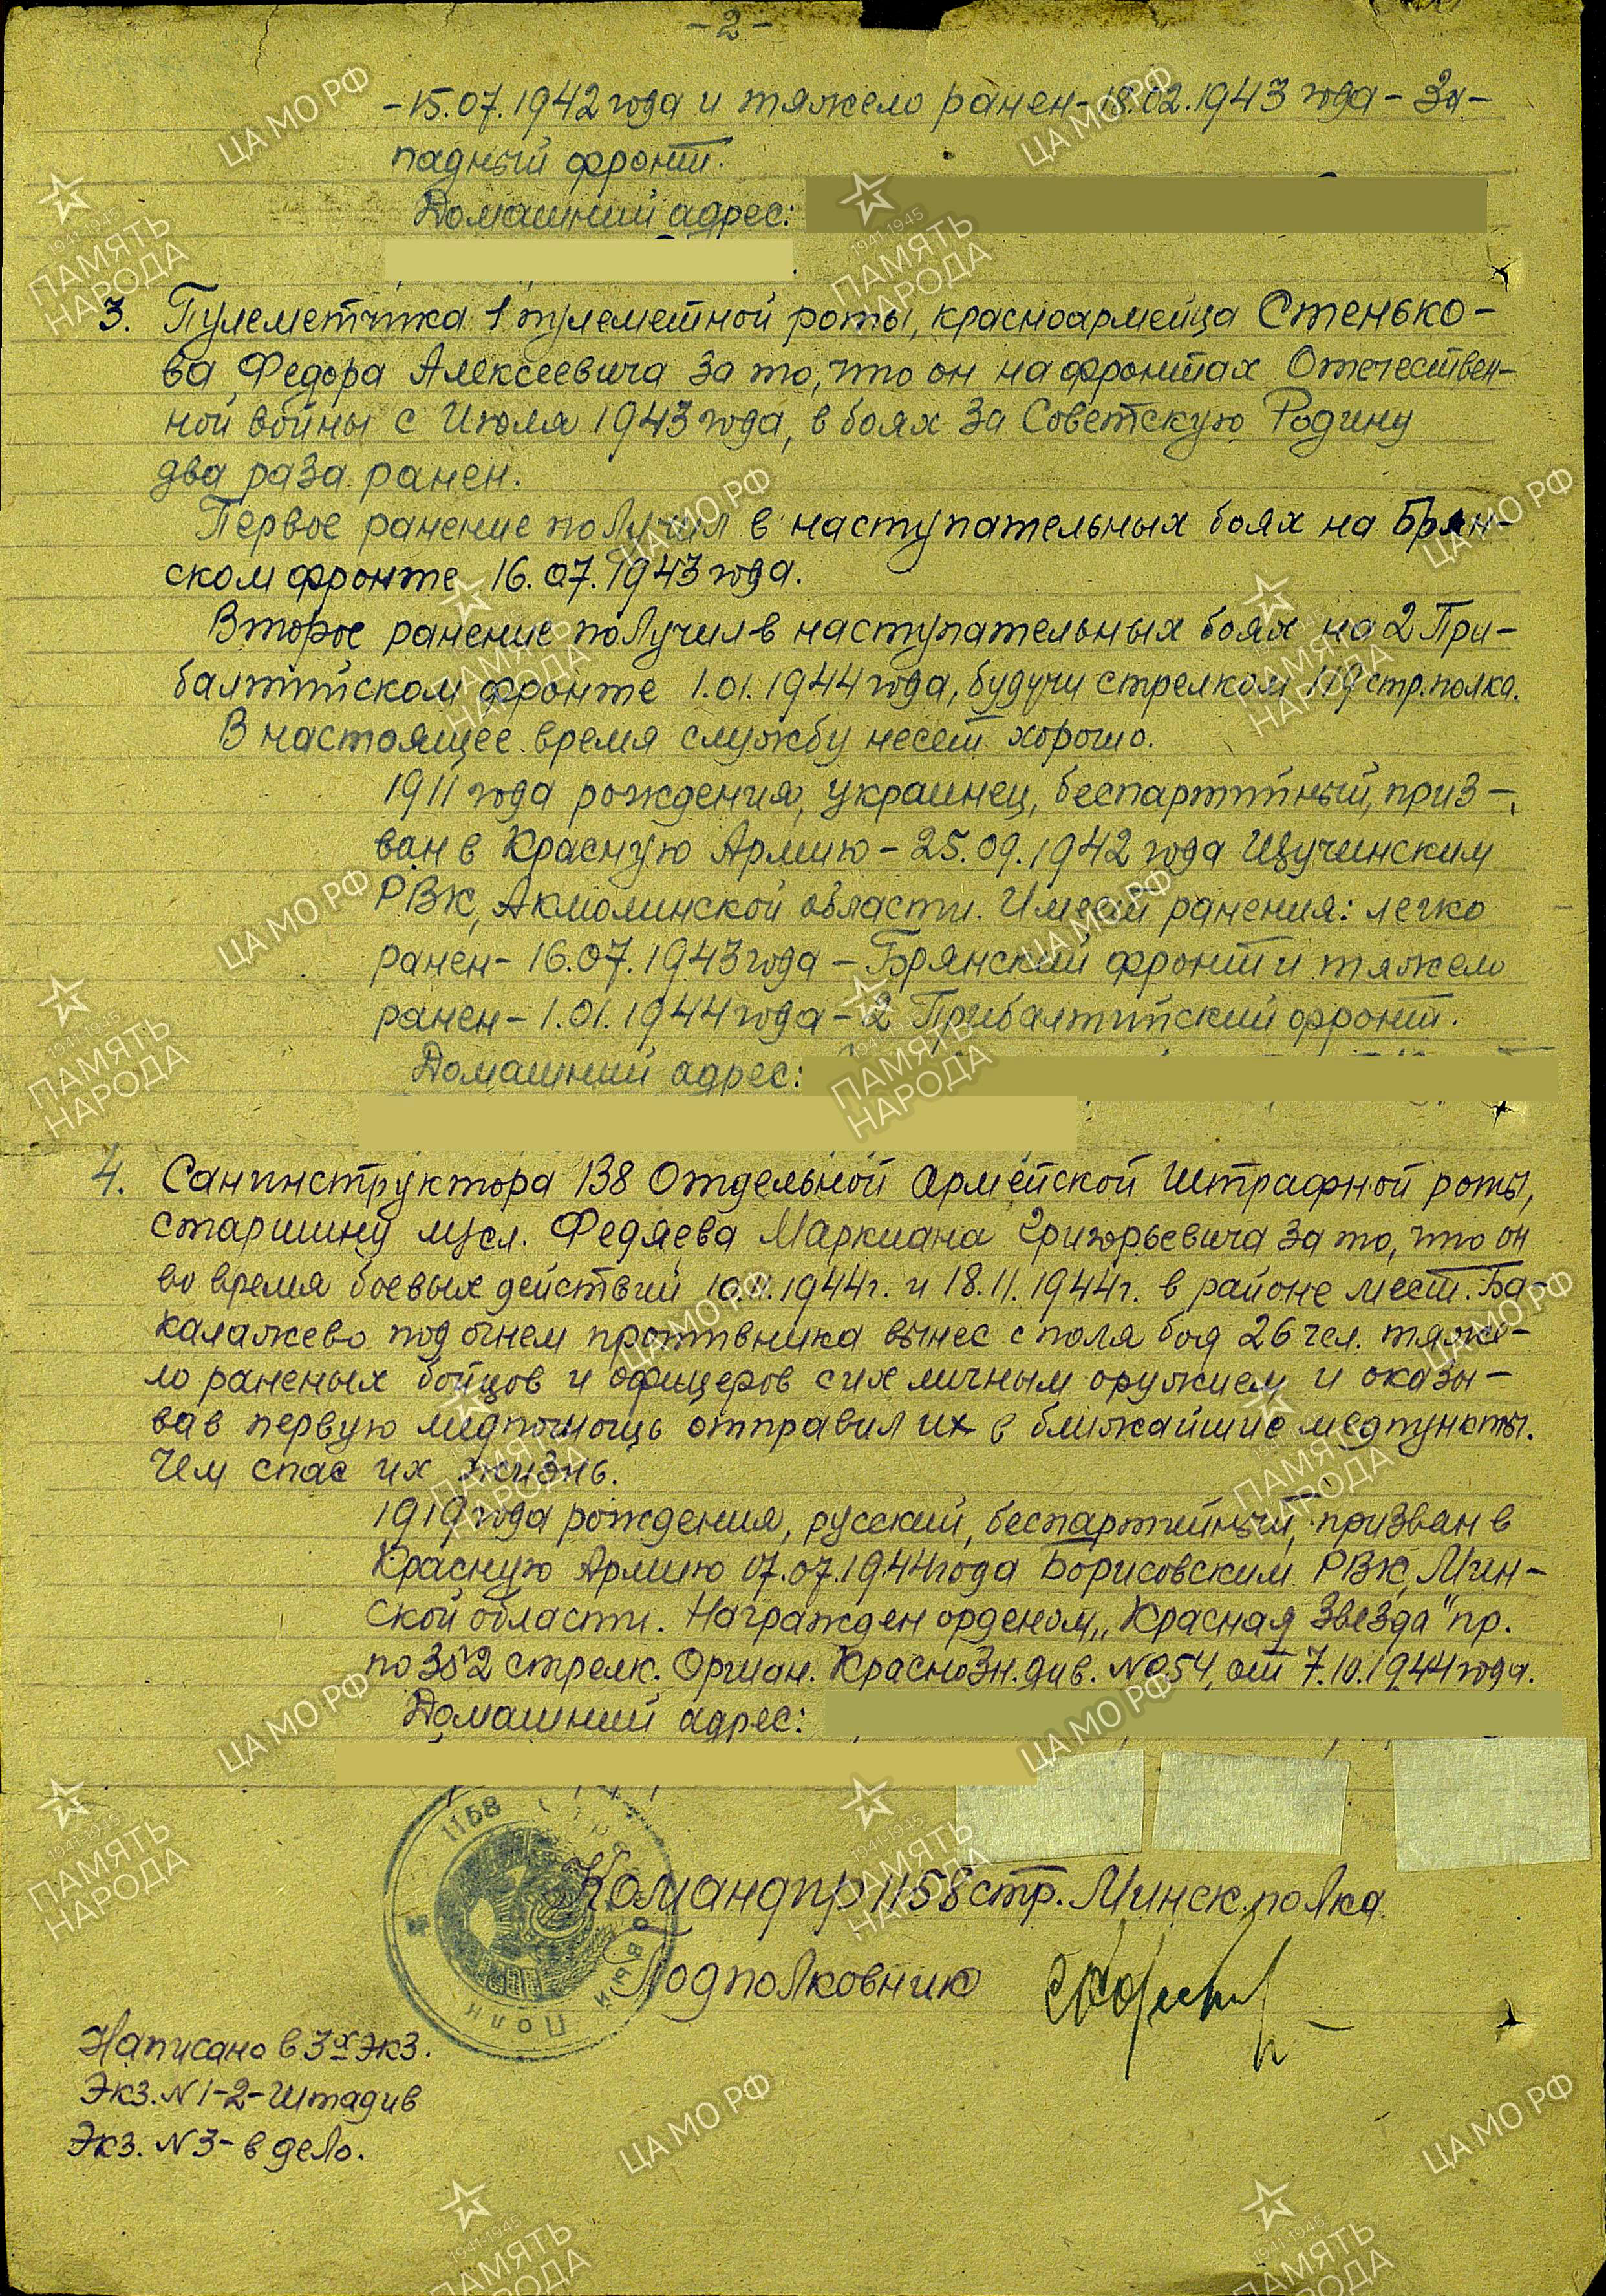 - 2 -
- 15.07.1942 года и тяжело ранен - 18.02.1943 года - За-
падный фронт.
Домашний адрес:
3. Пулеметчика 1 пулеметной роты, красноармейца Стенько-
ва Федора Алексеевича за то, что он на фронтах Отечествен-
ной войны с Июля 1943 года, в боях за Советскую Родину
два раза ранен.
Первое ранение получил в наступательных боях на Брян-
ском фронте 16.07.1943 года.
Второе ранение получил в наступательных боях на 2 При-
балтийском фронте 1.01.1944 года, будучи стрелком 119 стр.полка.
В настоящее время службу несет хорошо.
1911 года рождения, украинец, беспартийный, приз-
ван в Красную Армию - 25.09.1942 года Щучинским
РВК, Акмолинской области. Имеет ранения: легко
ранен - 16.07.1943 года - Брянский фронт и тяжело
ранен - 1.01.1944 года - 2 Прибалтийский фронт.
Домашний адрес:
4. Санинструктора 138 Отдельной Армейской Штрафной роты,
старшину м/сл. Федяева Маркиана Григорьевича за то, что он
во время боевых действий 10.11.1944г. и 18.11.1944г. в районе мест. Ба-
калажево под огнем противника вынес с поля боя 26 чел. тяже-
ло раненых бойцов и офицеров с их личным оружием и оказы-
вав первую медпомощь отправил их в ближайшие медпункты.
Чем спас их жизнь.
1919 года рождения, русский, беспартийный, призван в
Красную Армию 07.07.1944 года Борисовским РВК, Мин-
ской области. Награжден орденом „Красная Звезда" пр.
по 352 стрелк. Оршан. Краснозн. див. №054, от 7.10.1944 года.
Домашний адрес:
1158 Стрелковый Полк
Командир 1158 стр. Минск. полка
Подполковник
Написано в 3х экз.
Экз. N 1-2 - Штадив
Экз. N 3 - в дело.
ЦА МО РФ
1941-1945
ПАМЯТЬ
НАРОДА